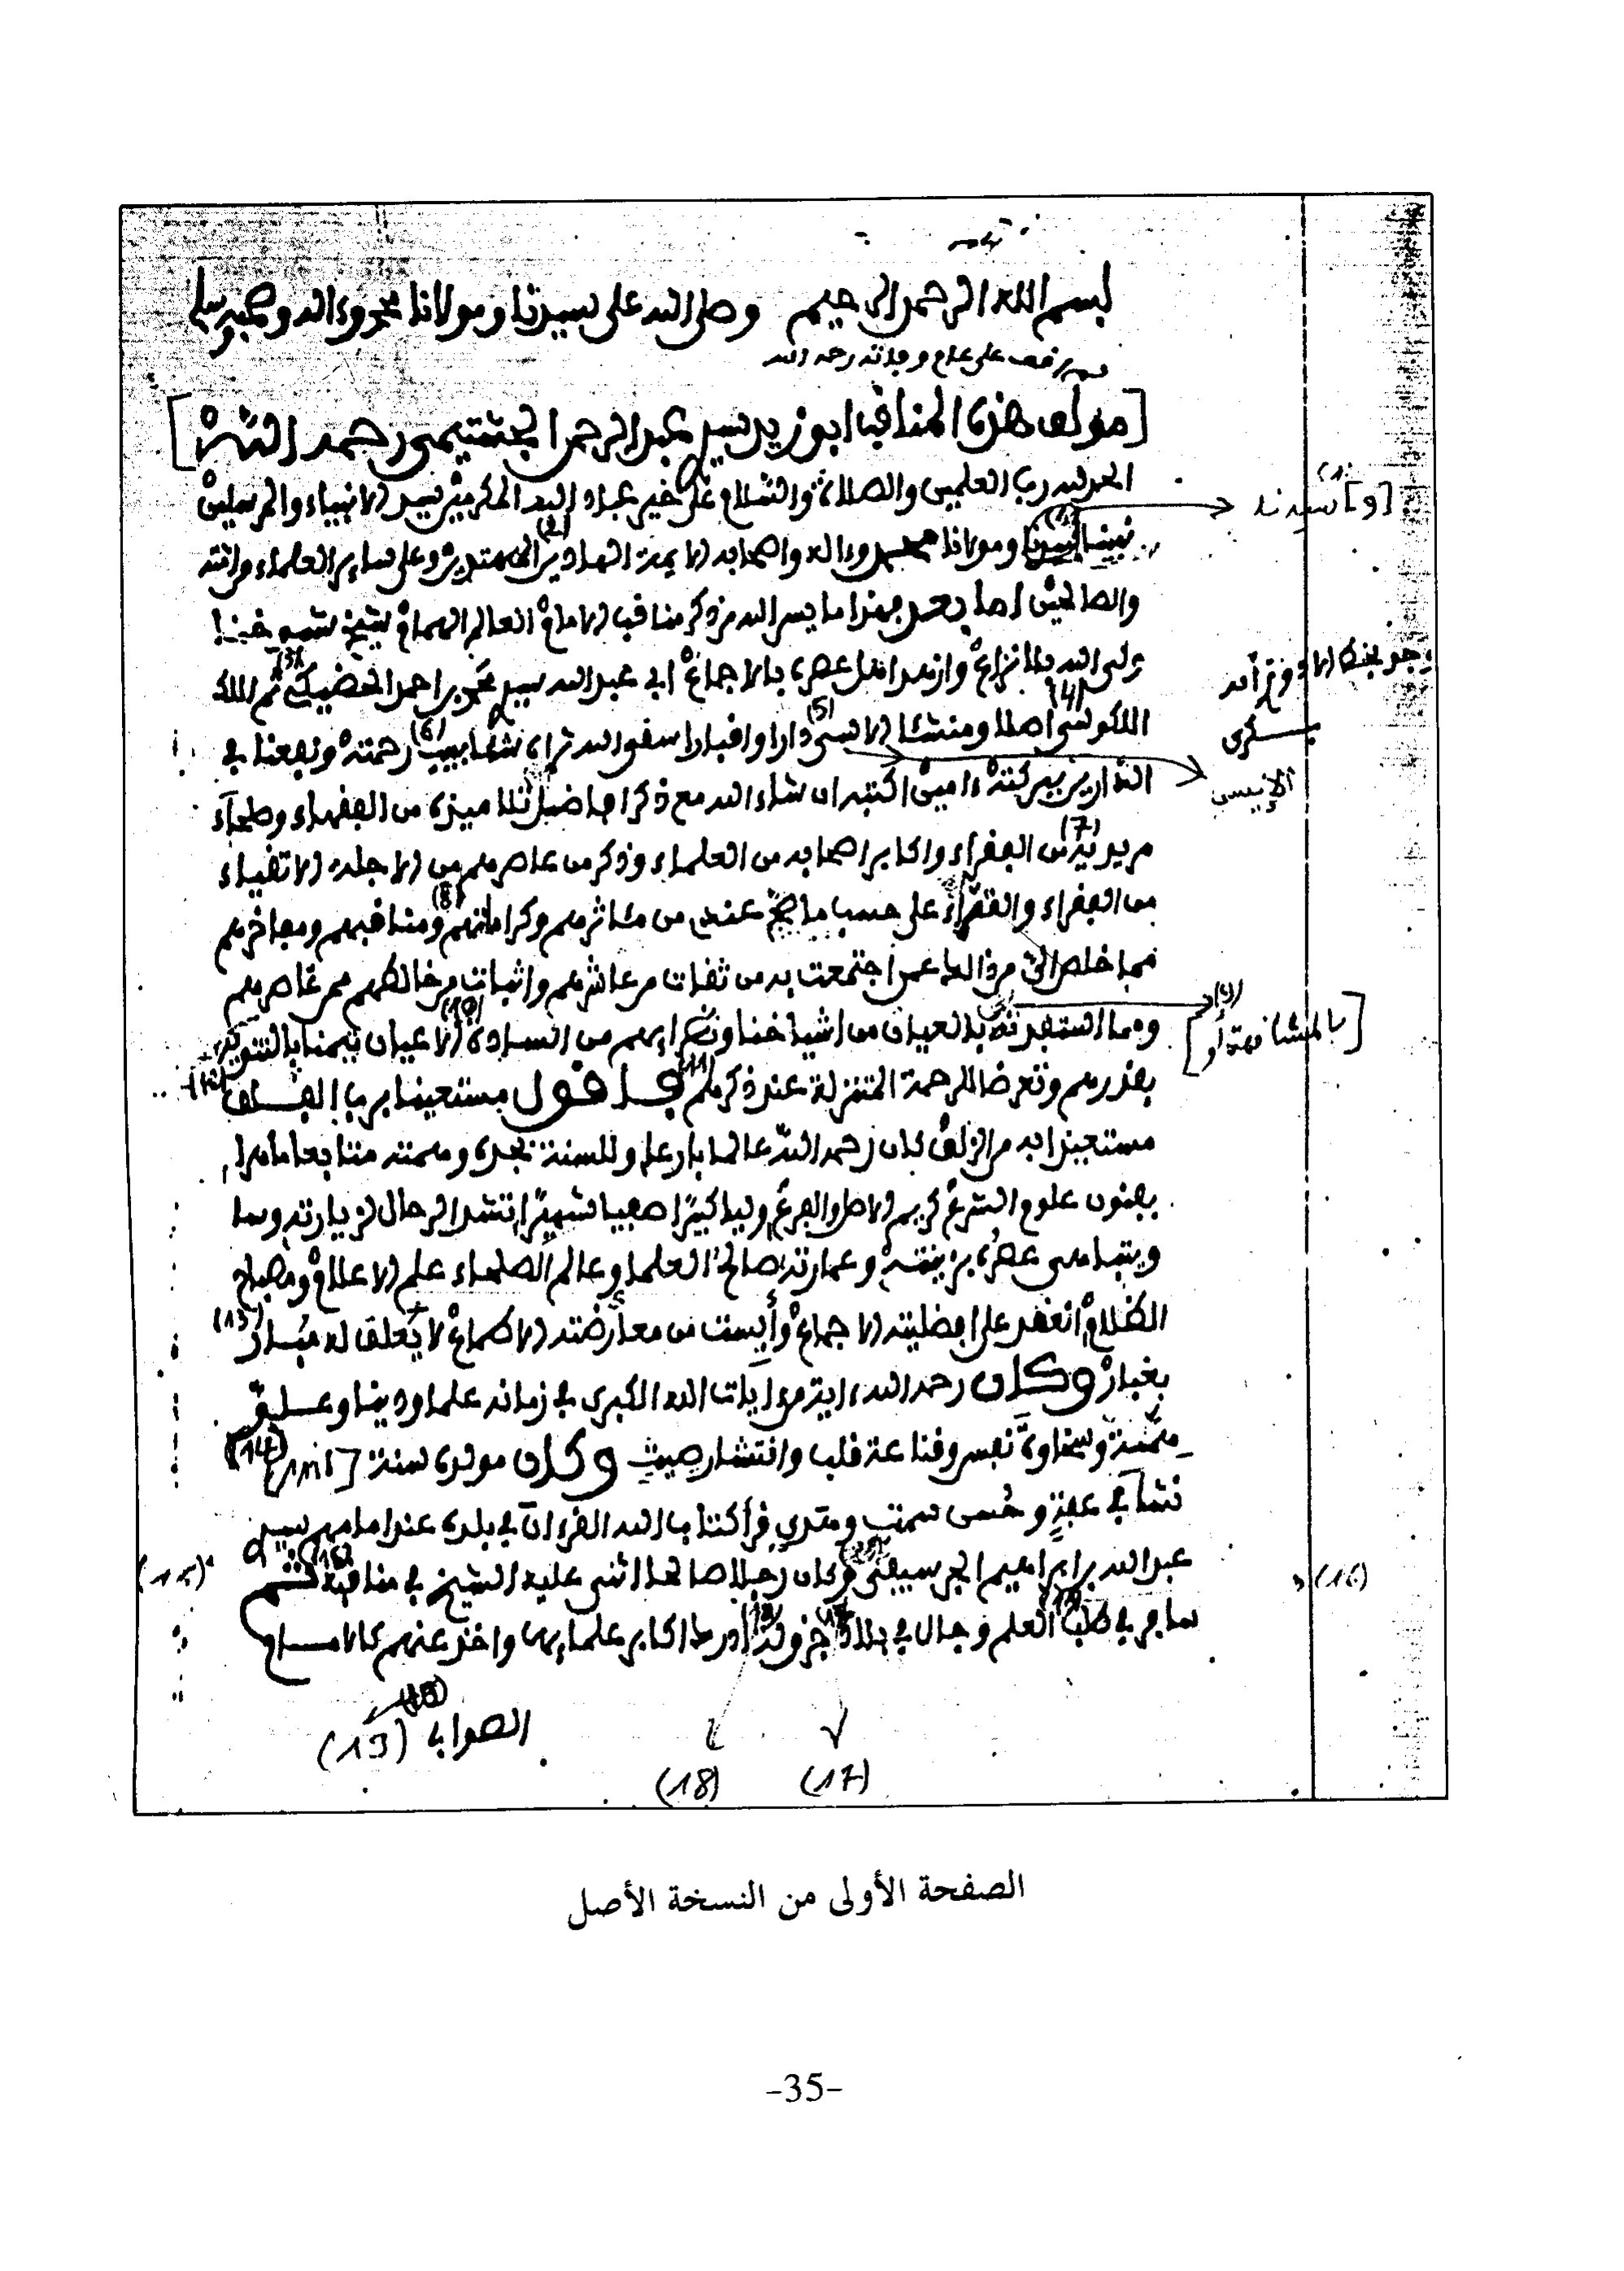 بسم الله الرحمن الرحيم وصلى الله على سيدنا ومولانا محمد وءاله وصحبه وسلم
على وفاته رحمه الله
[مولف هذه المناقب ابو زيد سيدي عبد الرحمن الجشتيمي رحمه الله]
الحمد لله رب العلمين والصلاة والسلام على خير عباد الله المكرمين سيد الانبياء والمرسلين
[و]سيدنا (1)
نبينا سيدنا ومولانا محمد وءاله واصحابه الايمة الهادين المهتدين (2) وعلى ساير العلماء
والصالحين اما بعد فهذا ما يسر الله من ذكر مناقب الامام العالم الهمام شيخ شيوخنا
ولى الله بلا نزاع وازهد اهل عصره بالاجماع ابي عبد الله سيدي محمد بن احمد الحضيكي (3) ثم
اللكوسي (4) اصلا ومنشئا الايسي (5) دارا واقبارا سقى الله ثراه شئابيب (6) رحمته ونفعنا في
الإيسي
الدارين ببركته ءامين اكتبه ان شاء الله مع ذكر افاضل تلاميذه من الفقهاء وصلحاء
مريديه (7) من الفقراء واكابر اصحابه من العلماء وذكر من عاصرهم من الاجلة الاتقياء
من الفقراء والقراء على حسب ما صح عندي من مئاثرهم وكراماتهم (8) ومناقبهم ومفاخرهم
مما خلص الي من ذالك عمن اجتمعت به من ثقات من عاشرهم واثبات من خالطهم ممن عاصرهم
[بالمشافهة أو] (9)
ومما استفدته بالعيان من اشياخنا ونظرايهم (10) من السادة الاعيان تيمنا بالتنويه
بقدرهم وتعرضا للرحمة المتنزلة عند ذكرهم (11) فاقول مستعينا برب الفلق (12)
مستجيرا به من الزلق كان رحمه الله عالما بارعا وللسنة بجده وهمته متابعا ماهرا
بفنون علوم الشرع كريم الاصل والفرع وليا كبيرا صفيا شهيرا تشد الرحال لزيارته وسما
ويتباهى عصره بزينته وعمارته صالح العلماء وعالم الصلحاء علم الاعلام ومصباح
الظلام انعقد على افضليته الاجماع وأيست من معارضته الاطماع لا يعلق له مبار (13)
بغبار وكان رحمه الله ءاية من ايات الله الكبرى في زمانه علما ودينا وعلو
همة وسخاوة نفس وقناعة قلب وانتشار صيت وكان مولده سنة [1118] (14)
نشأ في عفة وحسن سمت وهدي قرأ كتاب الله القرءان في بلده عند امامهم سيدي
عبد الله بن ابراهيم الجرسيفي (15) وكان رجلا صالحا اثنى عليه الشيخ في مناقبه (16) ثم
سافر في طلب العلم وجال في بلاد جزولة ادرك اكابر علمايها واخذ عنهم كالامام
الصوابي (19)
(17)
(18)
الصفحة الأولى من النسخة الأصل
-35-